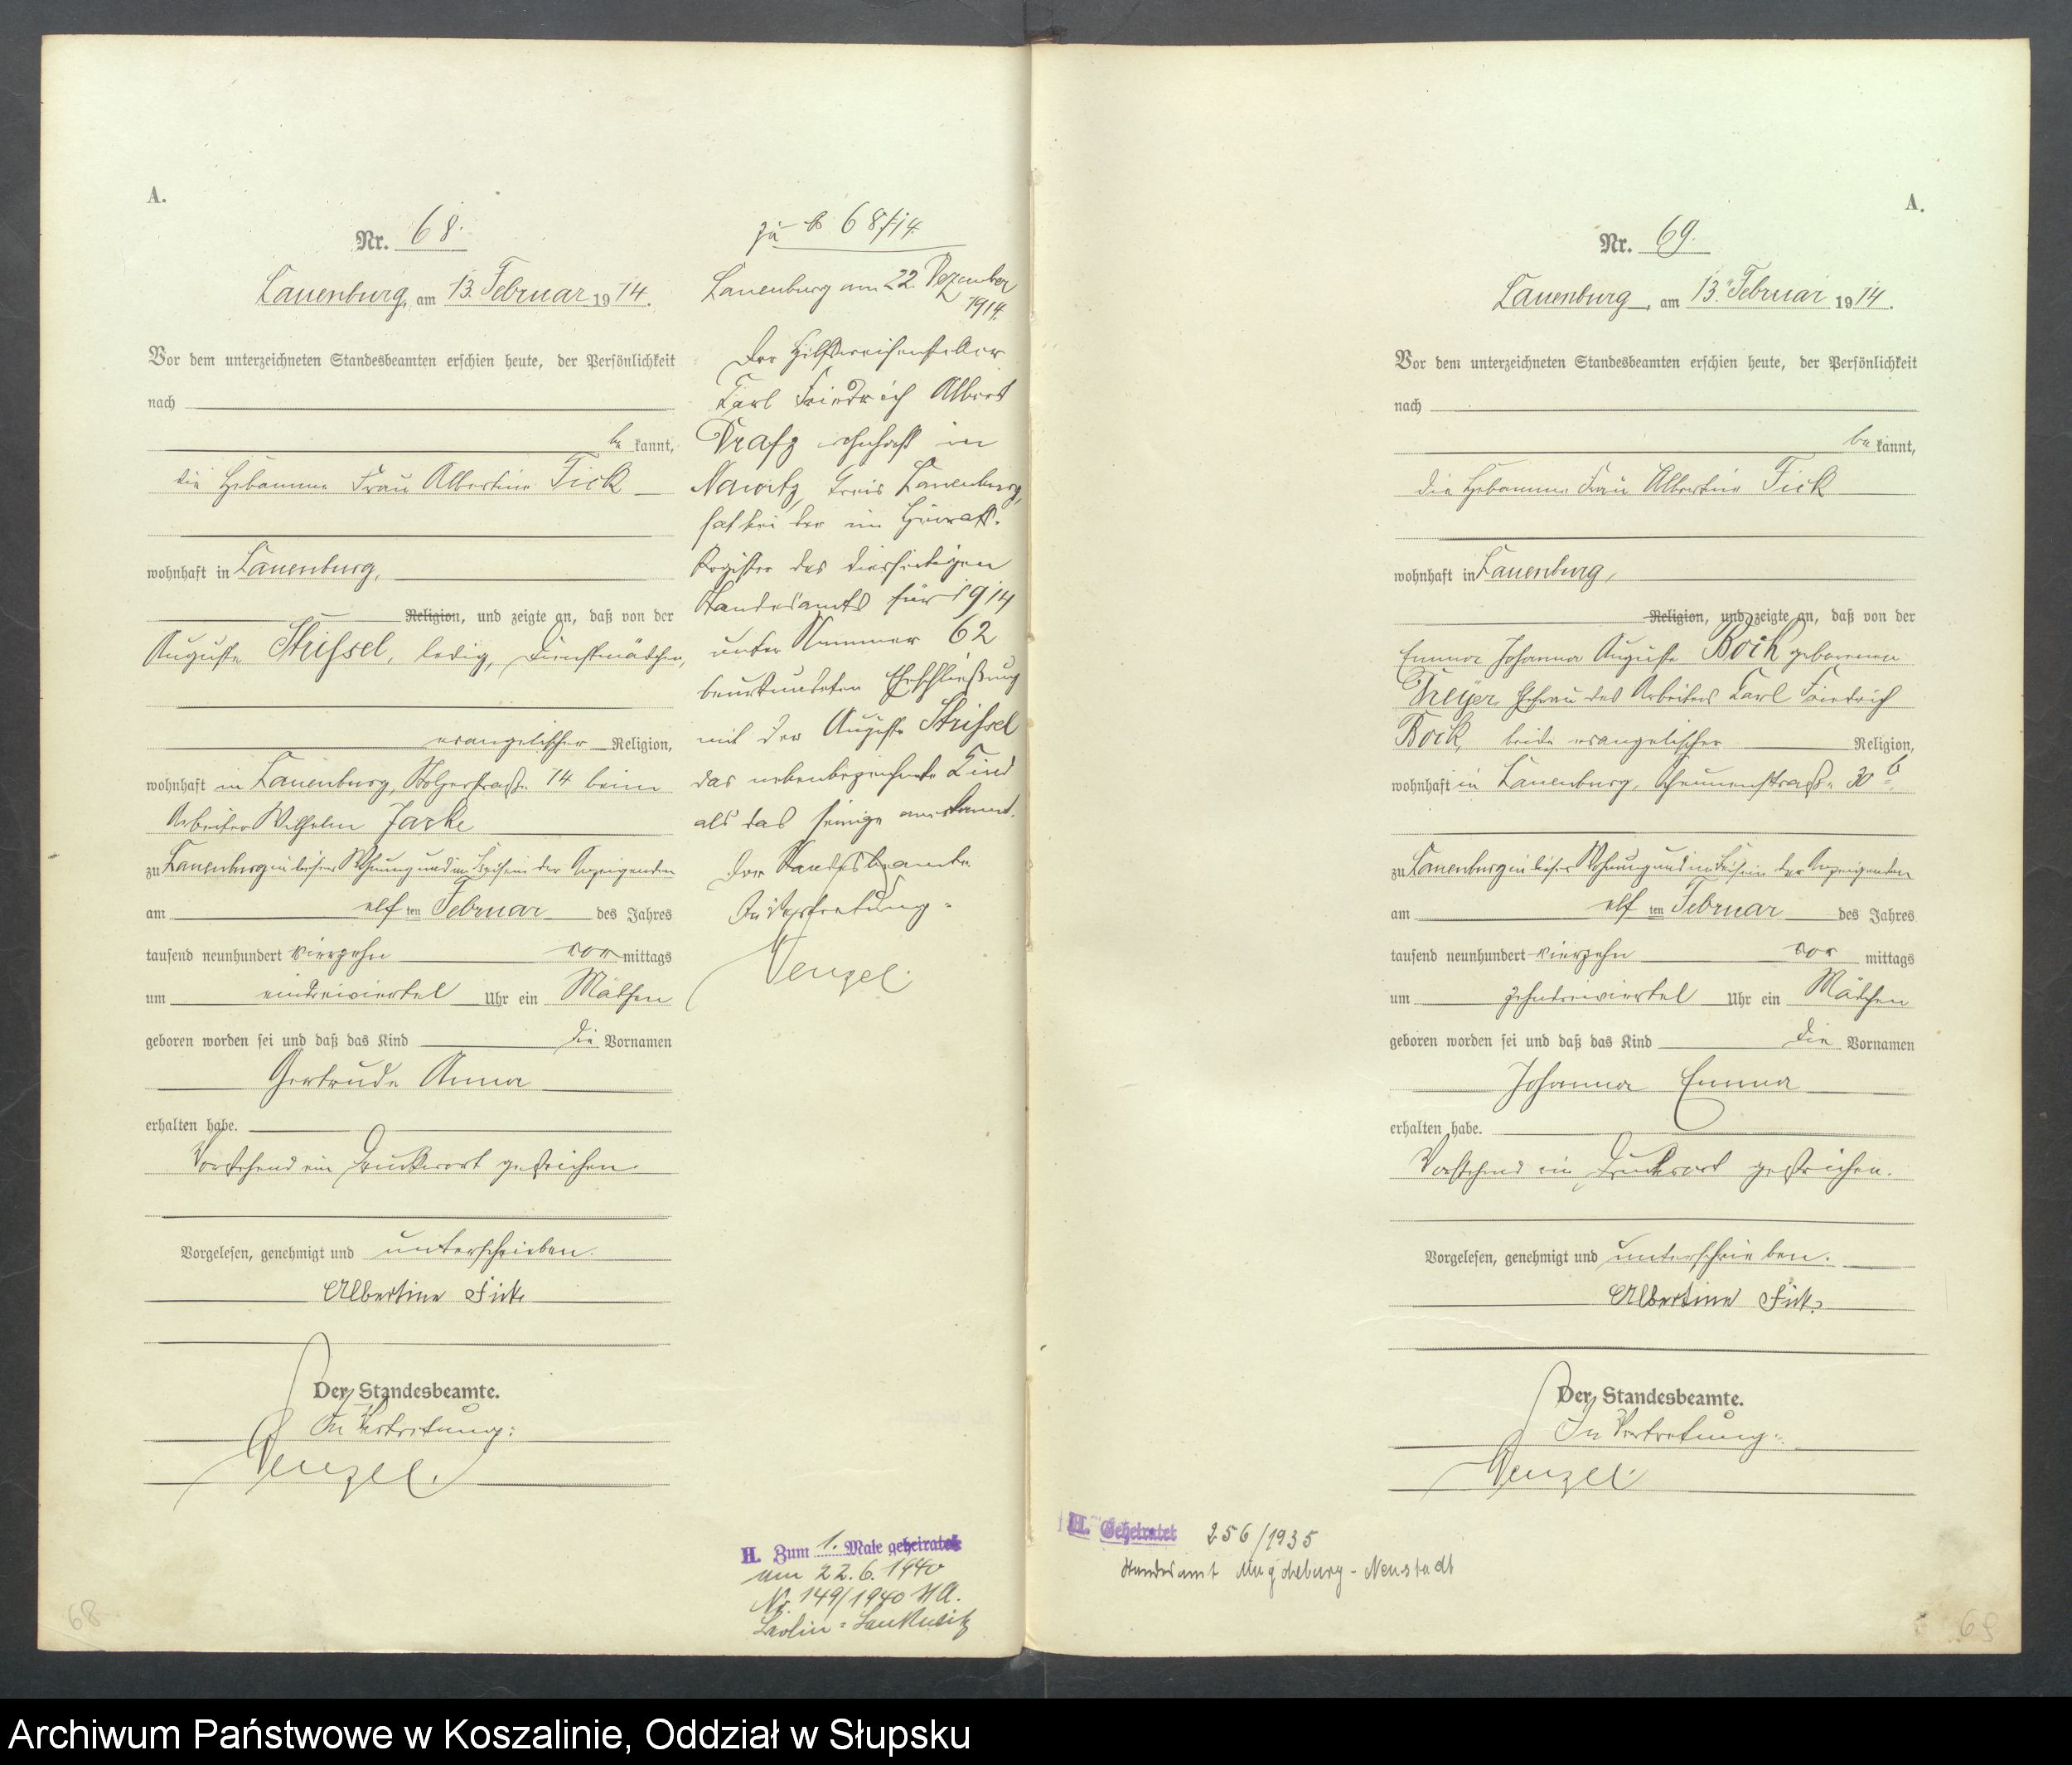 A.
Nr. 68.
Lauenburg, am 13. Februar 1914.
Vor dem unterzeichneten Standesbeamten erschien heute, der Persönlichkeit
nach
be kannt,
die Hebamme Frau Albertine Fick
wohnhaft in Lauenburg,
Religion, und zeigte an, daß von der
Auguste Strissel, ledig, Dienstmädchen,
evangelischer Religion,
wohnhaft in Lauenburg, Stolperstraße 14 beim
Arbeiter Wilhelm Jarke
zu Lauenburg in dieser Wohnung und in Beisein der Anzeigenden
am elf ten Februar des Jahres
tausend neunhundert vierzehn vor mittags
um eindreiviertel Uhr ein Mädchen
geboren worden sei und daß das Kind die Vornamen
Gertrude Anna
erhalten habe.
Vorstehend ein Druckwort gestrichen.
Vorgelesen, genehmigt und unterschrieben.
Albertine Fick
Der Standesbeamte.
In Vertretung:
Wenzel.
68
zu № 68/14.
Lauenburg am 22. Dezember
1914.
Der Hilfsweichensteller
Karl Friedrich Albert
Drafz wohnhaft in
Nawitz, Kreis Lauenburg,
hat bei der im Heirats-
Register des diesseitigen
Standesamts für 1914
unter Nummer 62
beurkundeten Eheschließung
mit der Auguste Strissel
das nebenbezeichnete Kind
als das seinige anerkannt.
Der Standesbeamte
In Vertretung:
Wenzel.
H. Zum 1. Male geheiratet
am 22.6.1940
Nr. 149/1940 StA.
Berlin-Lankwitz
A.
Nr. 69.
Lauenburg, am 13. Februar 1914.
Vor dem unterzeichneten Standesbeamten erschien heute, der Persönlichkeit
nach
be kannt,
die Hebamme Frau Albertine Fick
wohnhaft in Lauenburg,
Religion, und zeigte an, daß von der
Emma Johanna Auguste Bock geborenen
Dreyer, Ehefrau des Arbeiters Karl Friedrich
Bock, beide evangelischer Religion,
wohnhaft in Lauenburg, Scheunenstraße 30 b,
zu Lauenburg in dieser Wohnung und in Beisein der Anzeigenden
am elf ten Februar des Jahres
tausend neunhundert vierzehn vor mittags
um zehndreiviertel Uhr ein Mädchen
geboren worden sei und daß das Kind die Vornamen
Johanna Emma
erhalten habe.
Vorstehend ein Druckwort gestrichen.
Vorgelesen, genehmigt und unterschrieben.
Albertine Fick
Der Standesbeamte.
In Vertretung:
Wenzel.
H. Geheiratet 256/1935
Standesamt Magdeburg-Neustadt
69
Archiwum Państwowe w Koszalinie, Oddział w Słupsku